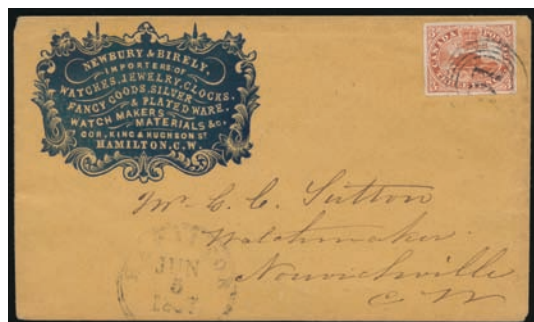 NEWBURY & BIRELY,
IMPORTERS OF
WATCHES, JEWELRY, CLOCKS,
FANCY GOODS, SILVER
& PLATED WARE.
WATCH MAKERS MATERIALS &c.
COR. KING & HUGHSON ST
HAMILTON, C.W.
CANADA
3 3
Mr. C. C. Sutton
Watchmaker
Norwichville
C W
JUN
5